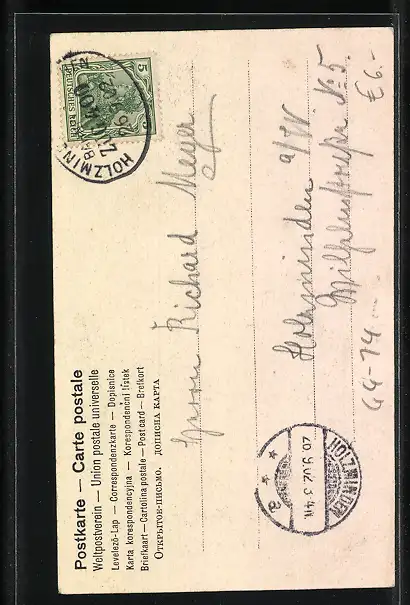 Postkarte — Carte postale
Weltpostverein — Union postale universelle
Levelező-Lap — Correspondenzkarte — Dopisnice
Karta korespondencyjna — Korespondenční lístek
Briefkaart — Cartolina postale — Post card — Brefkort
Открытое-письмо. дописна карта
5
DEUTSCHES REICH
HOLZMIN
Herrn Richard Meyer
Holzminden a/W
Wilhelmstraße No 5.
€6.-
G4-14
HOLZMINDEN
26.9.02.3-4N.
* a *